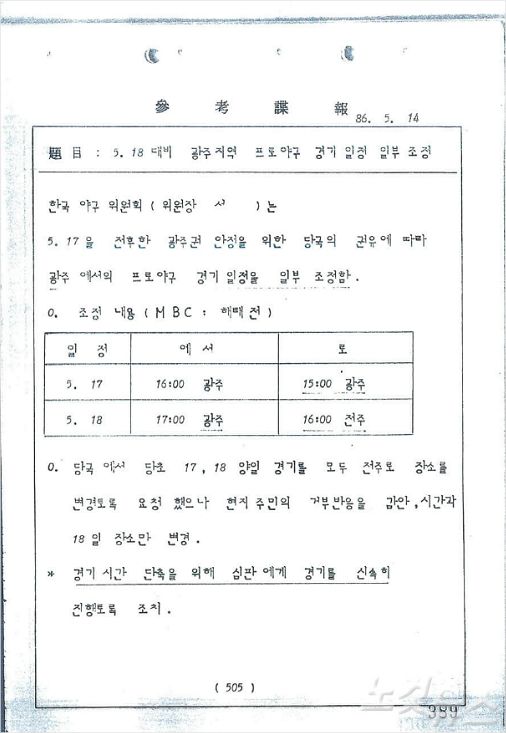 參 考 諜 報
86. 5. 14
題 目 : 5. 18 대비 광주지역 프로야구 경기 일정 일부 조정
한국 야구 위원회 ( 위원장 서 ) 는
5. 17 을 전후한 광주권 안정을 위한 당국의 권유에 따라
광주 에서의 프로야구 경기 일정을 일부 조정함 .
0. 조정 내용 ( M B C : 해태 전 )
일 정 에 서 로
5. 17 16:00 광주 15:00 광주
5. 18 17:00 광주 16:00 전주
0. 당국 에서 당초 17 , 18 양일 경기를 모두 전주로 장소를
변경토록 요청 했으나 현지 주민의 거부반응을 감안 , 시간과
18 일 장소만 변경 .
* 경기 시간 단축을 위해 심판 에게 경기를 신속히
진행토록 조치 .
( 505 )
노컷뉴스
389